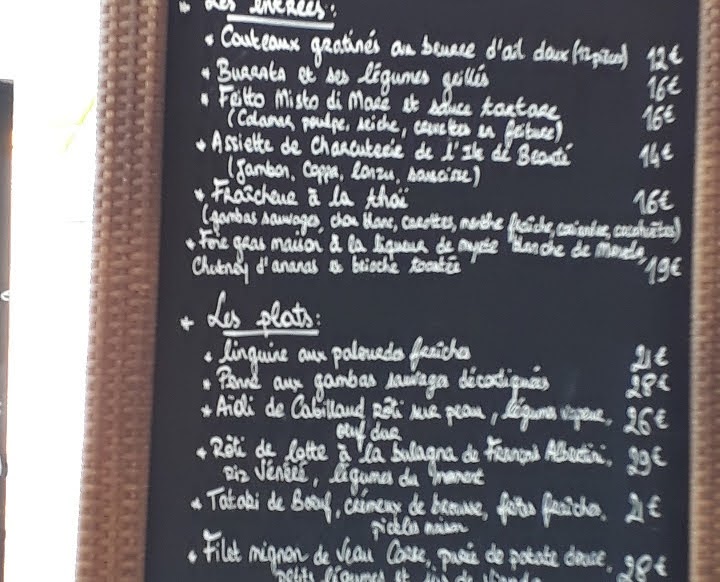 * Les entrées:
* Couteaux gratinés au beurre d'ail doux (12 pièces) 12€
* Burrata et ses légumes grillés 16€
* Fritto Misto di Mare et sauce tartare 16€
(Calamar, poulpe, seiche, crevettes en friture)
* Assiette de Charcuterie de l'Ile de Beauté 14€
(Jambon, Coppa, Lonzu, saucisse)
* Fraîcheur à la thaï 16€
(gambas sauvages, chou blanc, carottes, menthe fraîche, coriandre, cacahuètes)
* Foie gras maison à la liqueur de myrte blanche de
Chutney d'ananas et brioche toastée 19€
* Les plats:
* linguine aux palourdes fraîches 21€
* Penne aux gambas sauvages décortiquées 28€
* Aïoli de Cabillaud rôti sur peau, légumes vapeur, 26€
oeuf dur
* Rôti de lotte à la bulagna de François Albertini, 29€
riz vénéré, légumes du moment
* Tataki de Boeuf, crémeux de brousse, frites fraîches, 21€
pickles maison
* Filet mignon de Veau Corse, purée de patate douce,
petits légumes et jus de